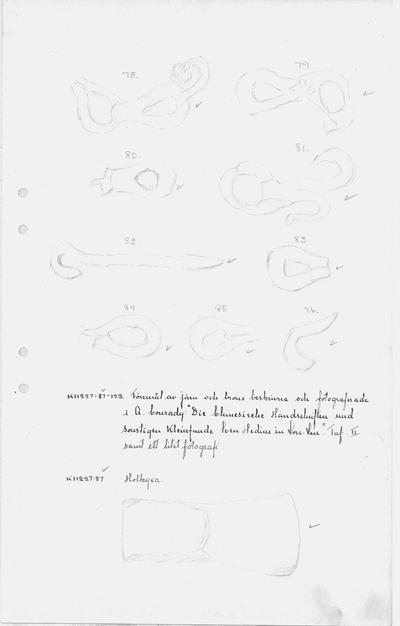 78. 79
80. 81.
82 83
84 85 86.
K11227:87-123 Föremål av järn och brons beskrivna och fotograferade
i A. Conrady: "Die Chinesische Handschriften und
sonstigen Kleinfunde Sven Hedins in Lou-lan" Taf. II
samt ett litet fotografi
K11227:87 Holkyxa